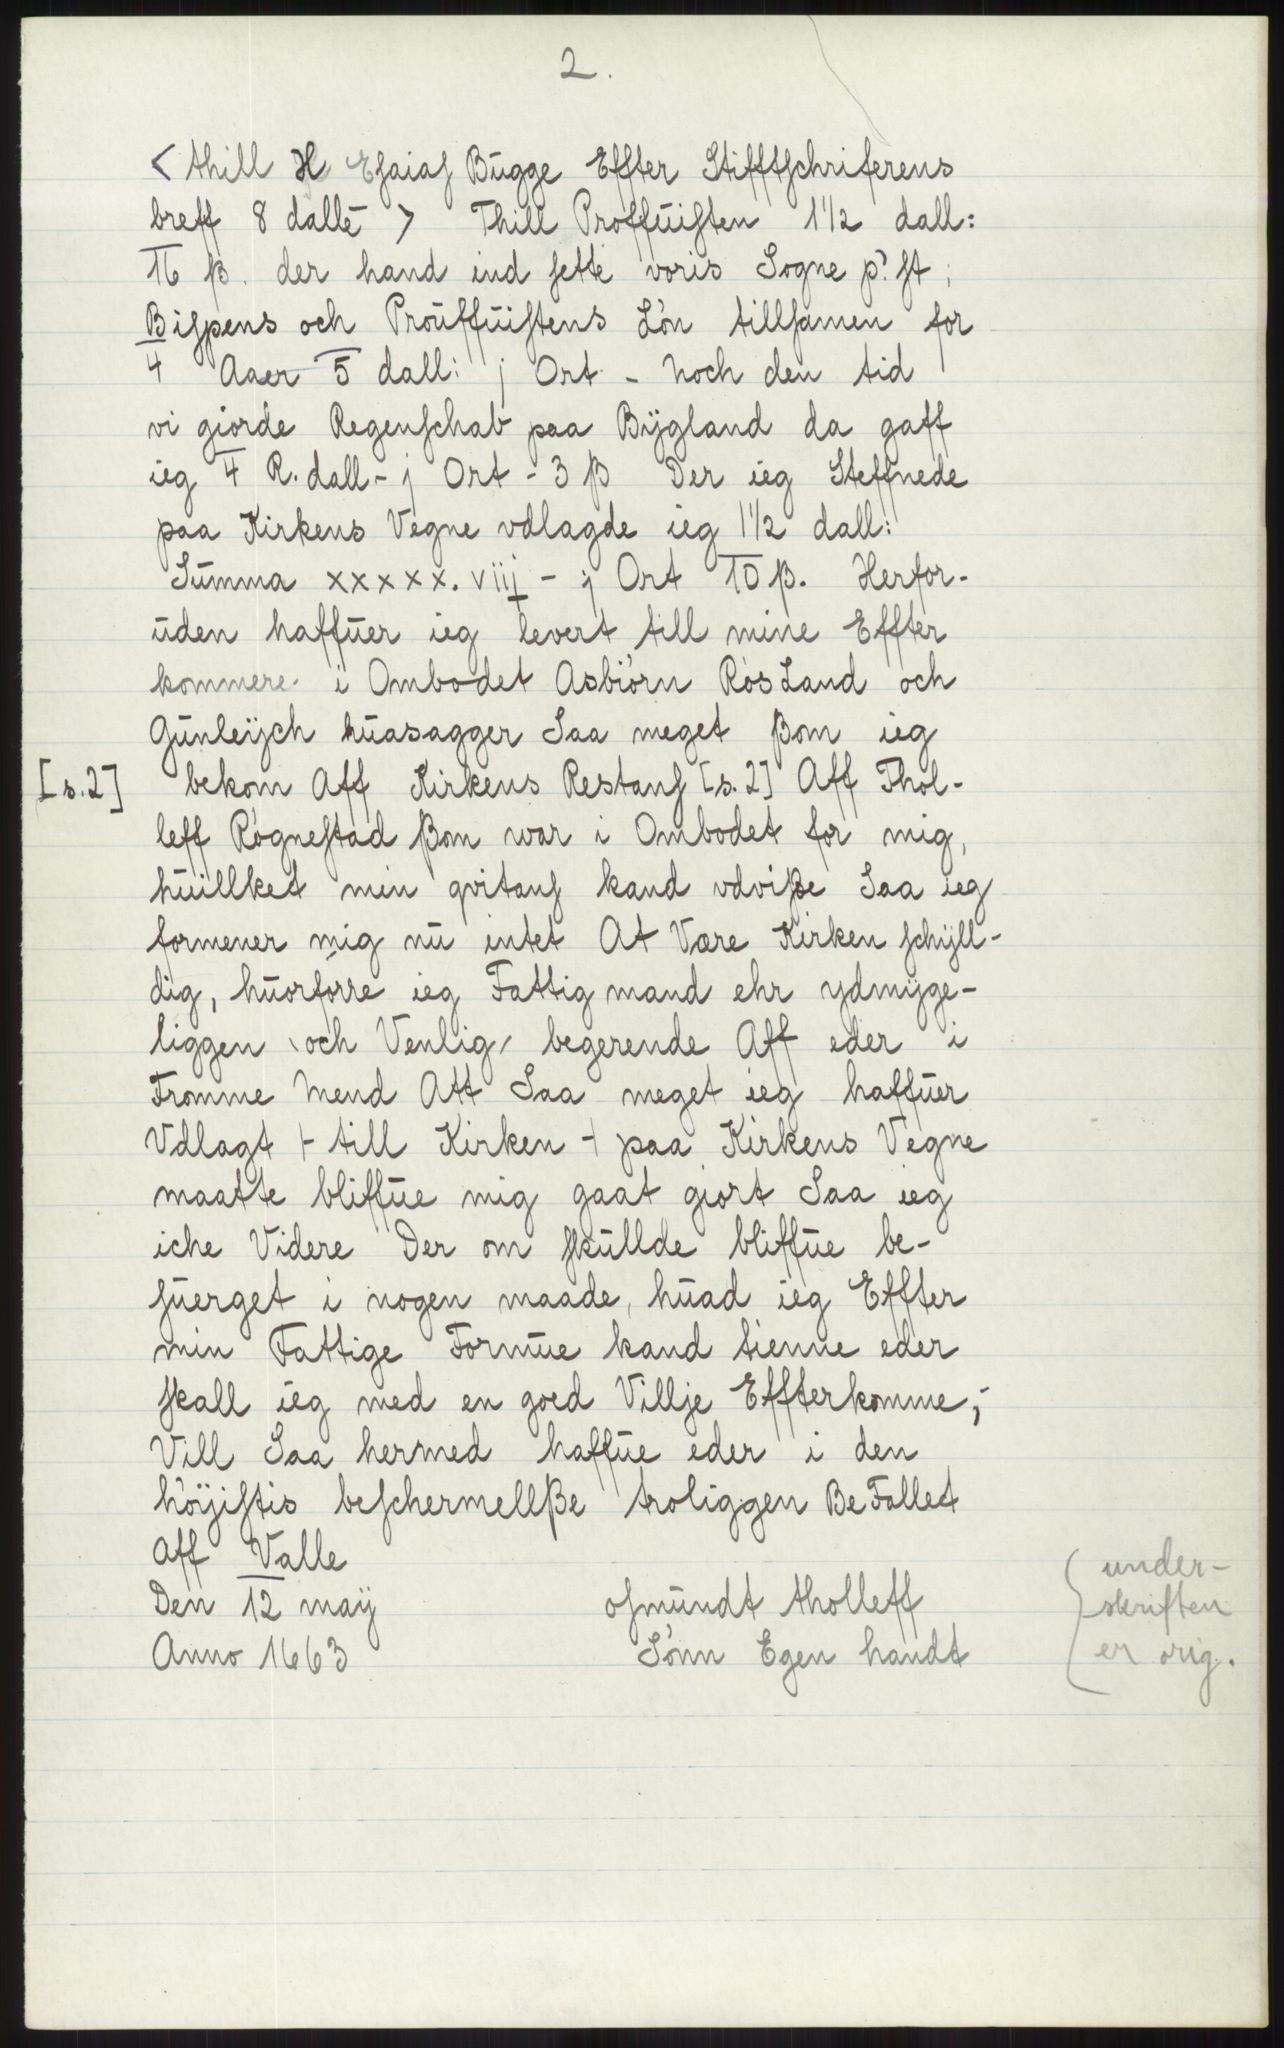 2.
< thill H Esaias Bügge Effter Stifftschriferens
breff 8 dallē > Thill Proffüisten 1½ dall:
16 ß. der hand ind sette voris Sogne p? st;
Bispens och Proüffüistens Lön tillsamen for
4 Aaer 5 dall: j Ort - Noch den tid
vi giorde Regenschab paa Bÿgland da gaff
ieg 4 R. dall - j Ort - 3 ß Der ieg Steffnede
paa Kirkens Vegne vdlagde ieg 1½ dall:
Sümma xxxxx. viij - j Ort 10 ß. Herfor-
üden haffüer ieg levert till mine Effter
kommere i Ombodet Asbiörn RösLand och
Günleÿch hüasagger Saa meget ßom ieg
[s.2] bekom Aff Kirkens Restans [s.2] Aff Thol-
leff Rögnestad ßom war i Ombodet for mig,
hüillket min qvitans kand vdviße Saa ieg
formener mig nü intet At Være Kirken schÿll-
dig, hüorforre ieg Fattig mand ehr ydmÿge-
liggen \och Venlig/ begerende Aff eder i
Fromme Mend Att Saa meget ieg haffüer
Vdlagt |- till Kirken -| paa Kirkens Vegne
maatte bliffüe mig gaat giort Saa ieg
iche Videre Der om skullde bliffüe be-
süerget i nogen maade, hüad ieg Effter
min Fattige Formüe kand tienne eder
skall ieg med en goed Villje Effterkomme,-
Vill Saa hermed haffüe eder i den
höÿistis beschermellße troliggen BeFallet
Aff Valle
Den 12 maÿ osmündt tholleff
Anno 1663 Sönn Egen handt
under-
skriften
er orig.